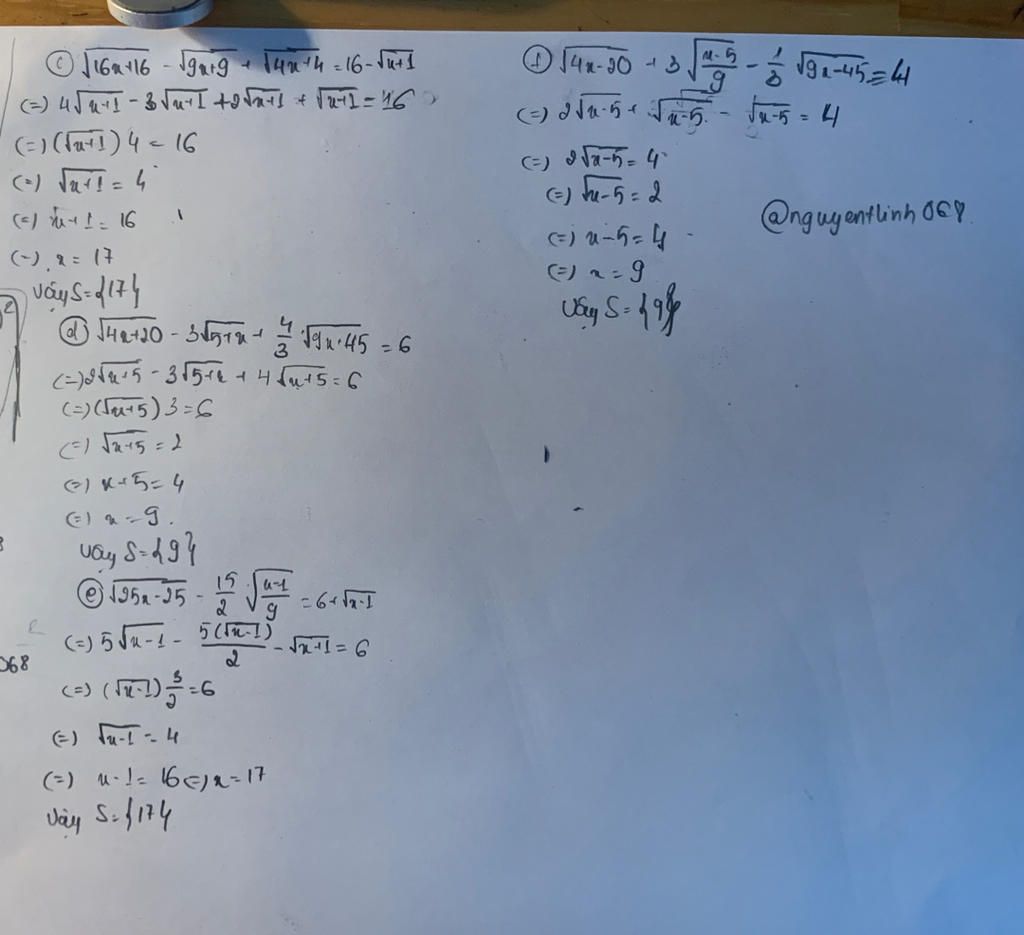 c) √16x+16 - √9x+9 + √4x+4 = 16 - √x+1
(=) 4√x+1 - 3√x+1 + 2√x+1 + √x+1 = 16
(=) (√x+1) 4 = 16
(=) √x+1 = 4
(=) x+1 = 16
(=) x = 17
Vậy S = {17}
d) √4x+20 - 3√5+x + 4/3 √9x+45 = 6
(=) 2√x+5 - 3√5+x + 4√x+5 = 6
(=) (√x+5) 3 = 6
(=) √x+5 = 2
(=) x+5 = 4
(=) x = 9.
Vậy S = {9}
e) √25x-25 - 15/2 √x-1/9 = 6 + √x-1
(=) 5√x-1 - 5(√x-1)/2 - √x+1 = 6
(=) (√x-1) 3/2 = 6
(=) √x-1 = 4
(=) x-1 = 16 (=) x = 17
Vậy S = {17}
068
f) √4x-20 + 3√x-5/9 - 1/3 √9x-45 = 4
(=) 2√x-5 + √x-5 - √x-5 = 4
(=) 2√x-5 = 4
(=) √x-5 = 2
(=) x-5 = 4
(=) x = 9
Vậy S = {9}
@nguyentlinh068.